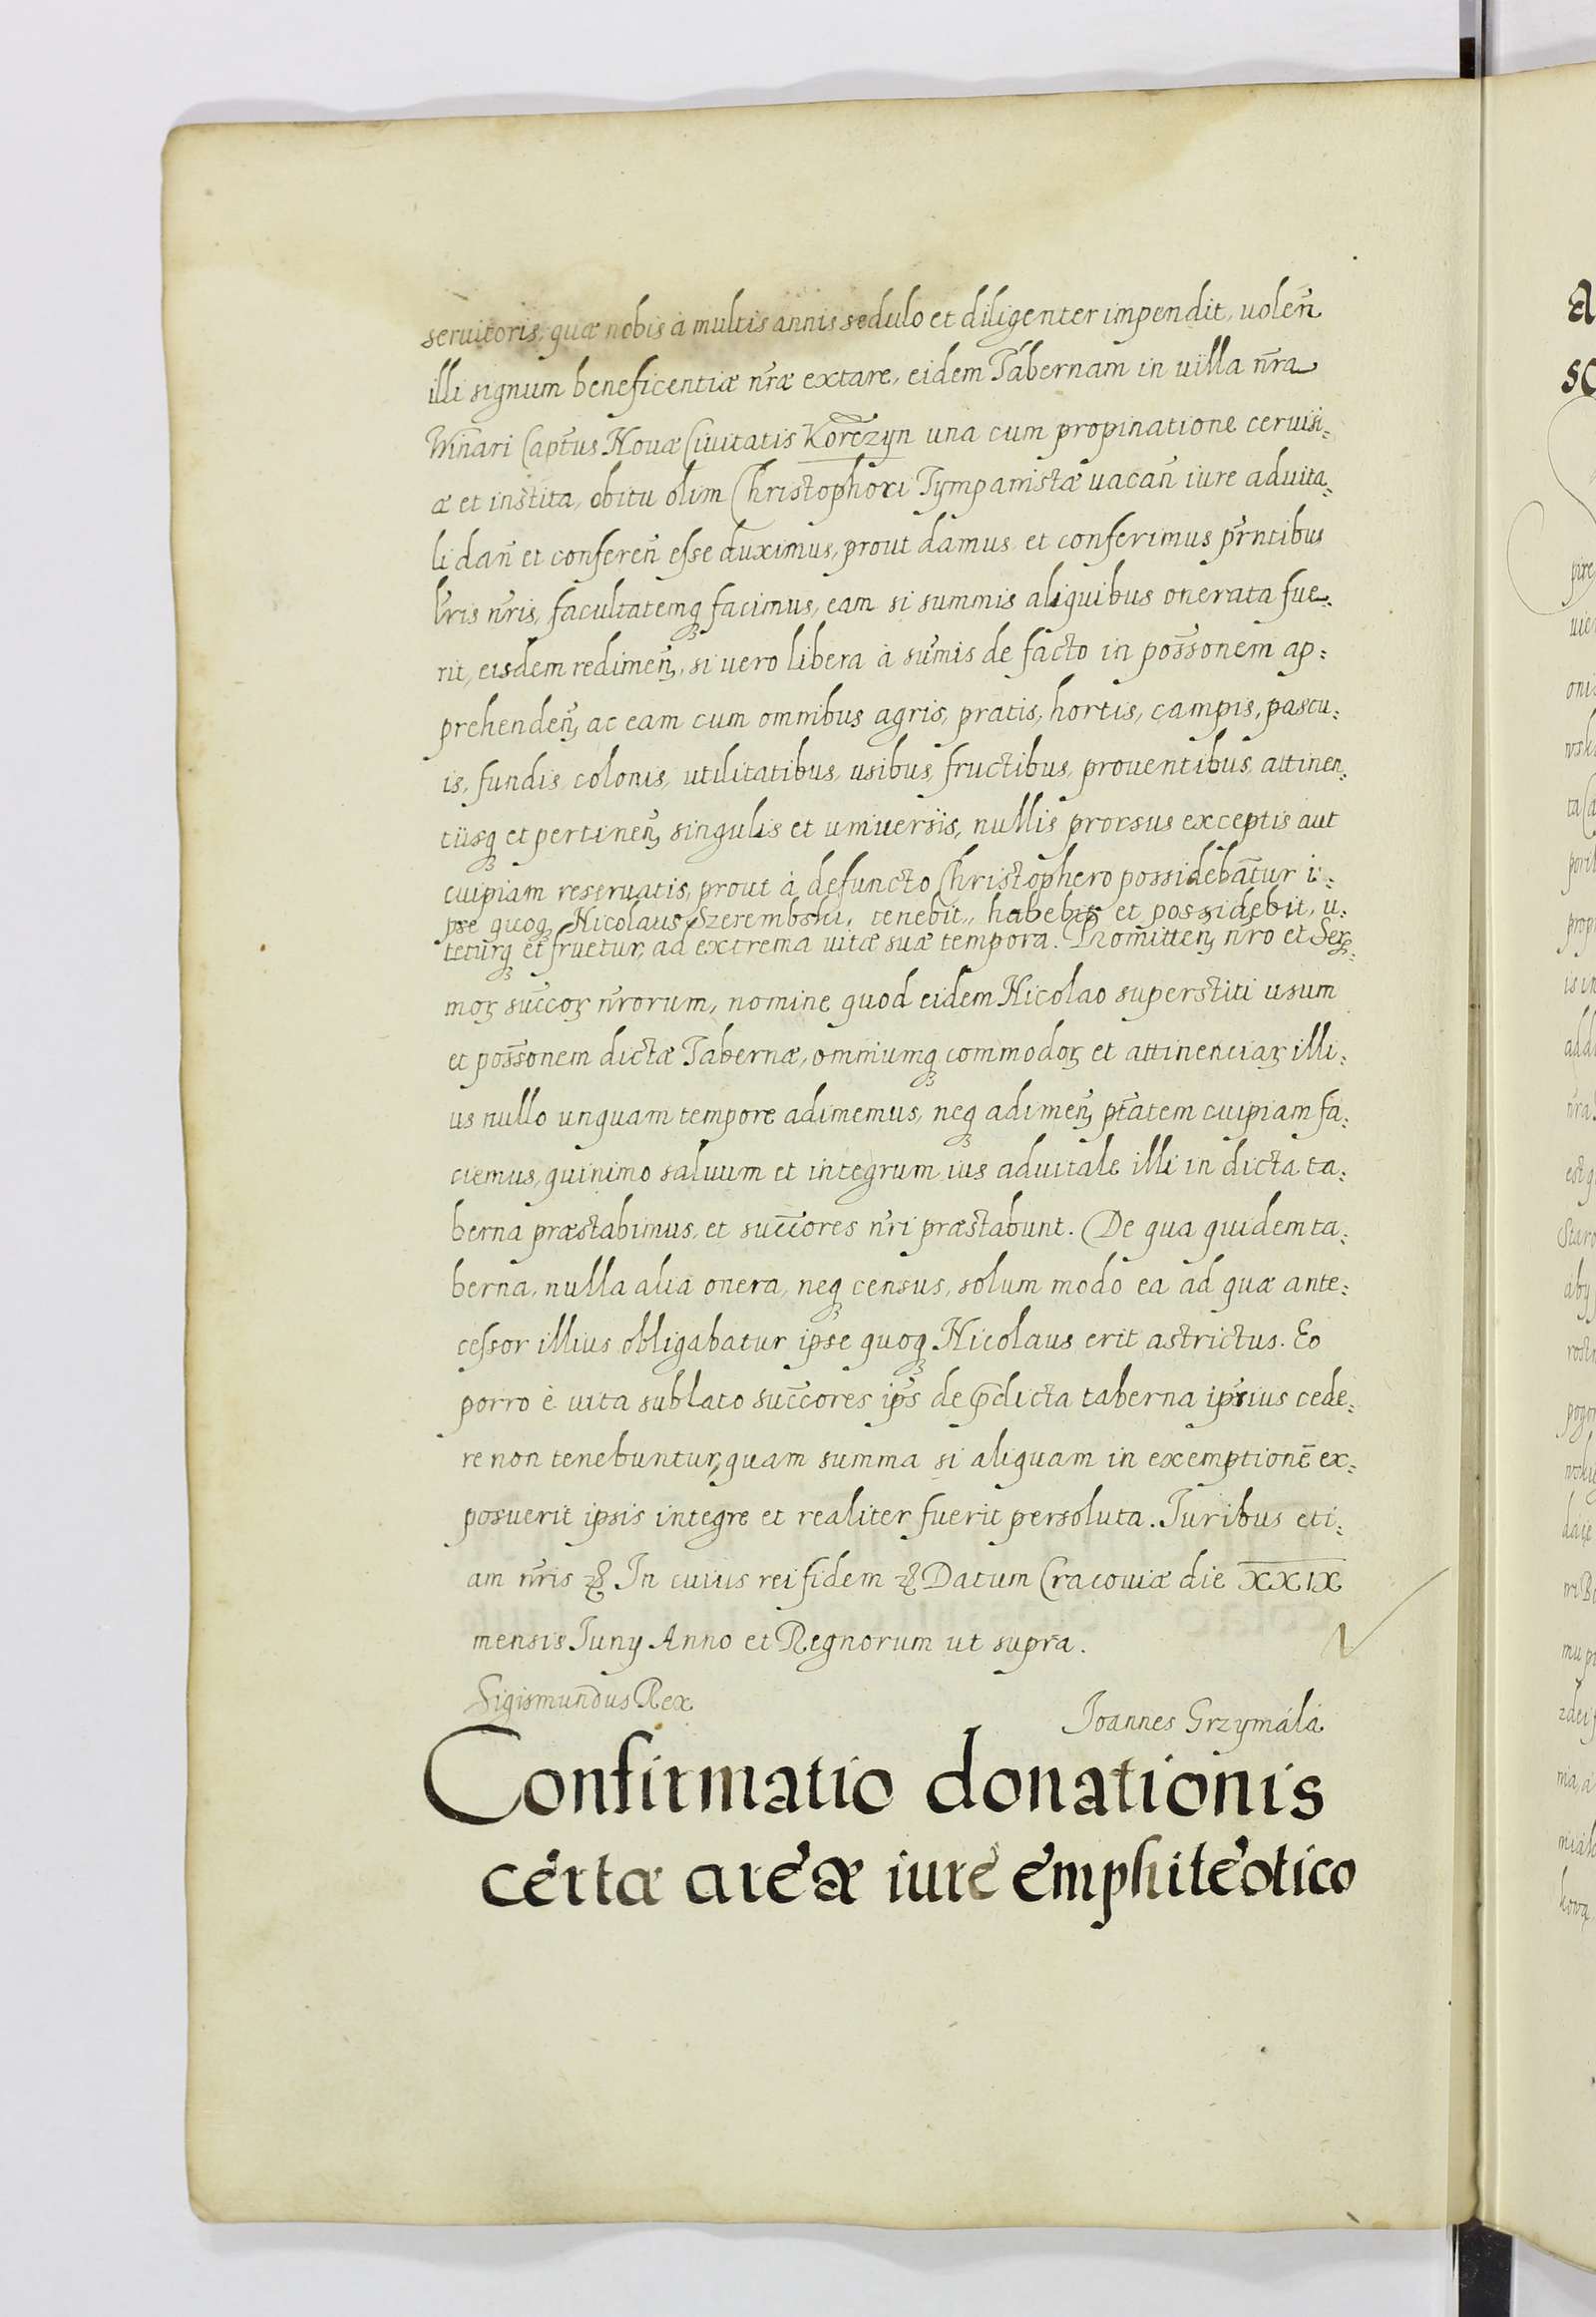 seruitoris, quæ nobis à multis annis sedulo et diligenter impendit, uolen̄
illi signum beneficentiæ nr̄æ extare, eidem Tabernam in uilla nr̄a
Winari Captūs Nouæ Ciuitatis Korczyn una cum propinatione ceruisi:
æ et instita, obitu olim Christophori Tympanistæ uacan̄ iure aduita:
li dan̄ et conferen̄ esse duximus, prout damus et conferimus pn̄tibus
lr̄is nr̄is, facultatemqꝫ facimus, eam si summis aliquibus onerata fue:
rit, eisdem redimen̄, si uero libera à sum̄is de facto in poss̄onem ap:
prehenden̄, ac eam cum omnibus agris, pratis, hortis, campis, pascu:
is, fundis, colonis, utilitatibus, usibus, fructibus, prouentibus, attinen:
tijsqꝫ et pertinen̄, singulis et uniuersis, nullis prorsus exceptis aut
cuipiam reseruatis, prout à defuncto Christophero possidebātur i:
pse quoqꝫ Nicolaus Szerembski, tenebit, habebit et possidebit, u:
teturqꝫ et fruetur, ad extrema uitæ suæ tempora. Promitten̄ nr̄o et Ser:
moꝝ succ̄oꝝ nr̄orum, nomine quod eidem Nicolao superstiti usum
et poss̄onem dictæ Tabernæ, omniumqꝫ commodoꝝ et attinenciaꝝ illi:
us nullo unquam tempore adimemus, neqꝫ adimen̄ ptātem cuipiam fa:
ciemus, quinimo saluum et integrum ius aduitale illi in dicta ta:
berna præstabimus, et succ̄ores nr̄i præstabunt. De qua quidem ta:
berna, nulla alia onera, neqꝫ census, solum modo ea ad quæ ante:
cessor illius obligabatur ipse quoqꝫ Nicolaus erit astrictus. Eo
porro è uita sublato succ̄ores ip̄s de p̄dicta taberna ipsius cede:
re non tenebuntur, quam summa si aliquam in exemptionē ex:
posuerit ipsis integre et realiter fuerit persoluta. Iuribus eti:
am nr̄is &c. In cuius rei fidem &c. Datum Cracouiæ die XXIX
mensis Iunÿ Anno et Regnorum ut supra.
Sigismundus Rex
Joannes Grzymála
Confirmatio donationis
certæ areæ iure emphiteotico